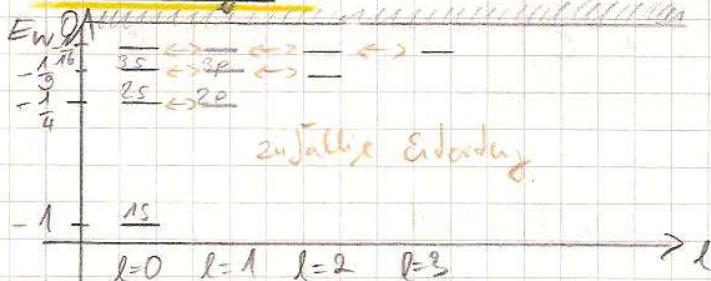 E 0
-1/16
-1/9 3s 3p
-1/4 2s 2p
zufällige Entartung
-1 1s
l=0 l=1 l=2 l=3 l